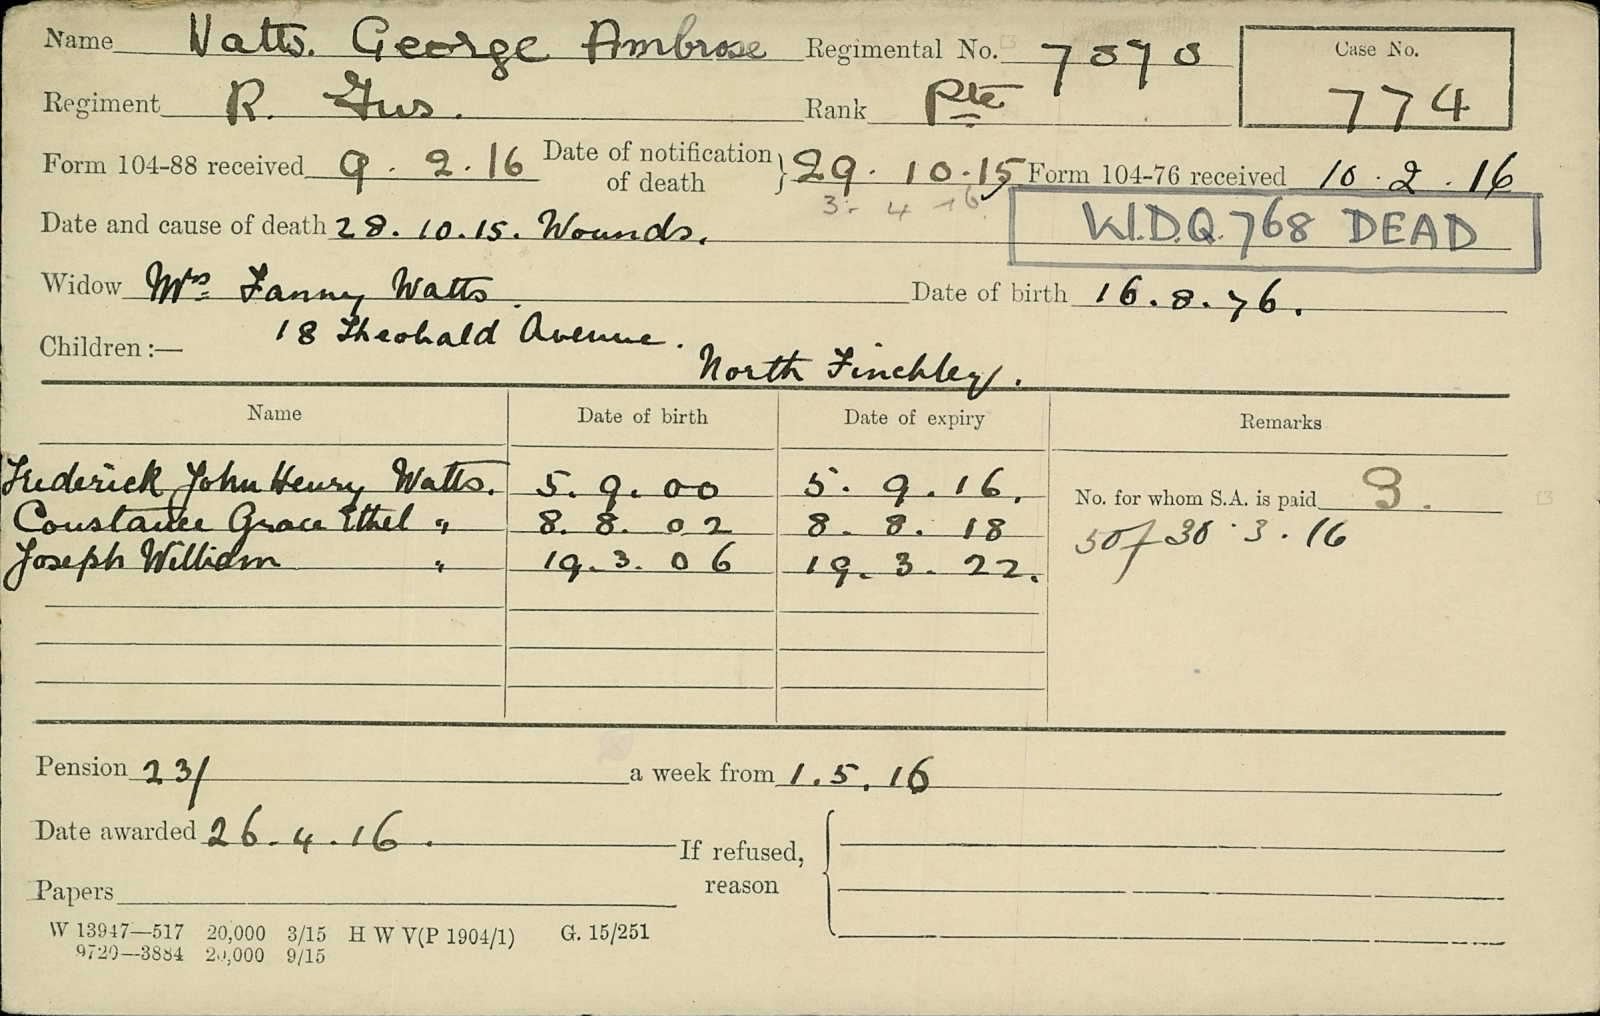 Name Watts. George Ambrose Regimental No. 7870 Case No. 774
Regiment R. Fus. Rank Pte
Form 104-88 received 9.2.16 Date of notification of death } 29.10.15 Form 104-76 received 10.2.16
3. 4 -16.
Date and cause of death 28.10.15. Wounds. W.D.Q. 768 DEAD
Widow Mrs Fanny Watts. Date of birth 16.8.76.
Children :— 18 Theobald Avenue.
North Finchley.
Name Date of birth Date of expiry Remarks
Frederick John Henry Watts. 5.9.00 5.9.16. No. for whom S.A. is paid 3.
Constance Grace Ethel " 8.8.02 8.8.18 30.3.16
Joseph William " 19.3.06 19.3.22.
Pension 23/ a week from 1.5.16
Date awarded 26.4.16. If refused,
reason
Papers
W 13947—517 20,000 3/15 H W V(P 1904/1) G. 15/251
9720—3884 20,000 9/15